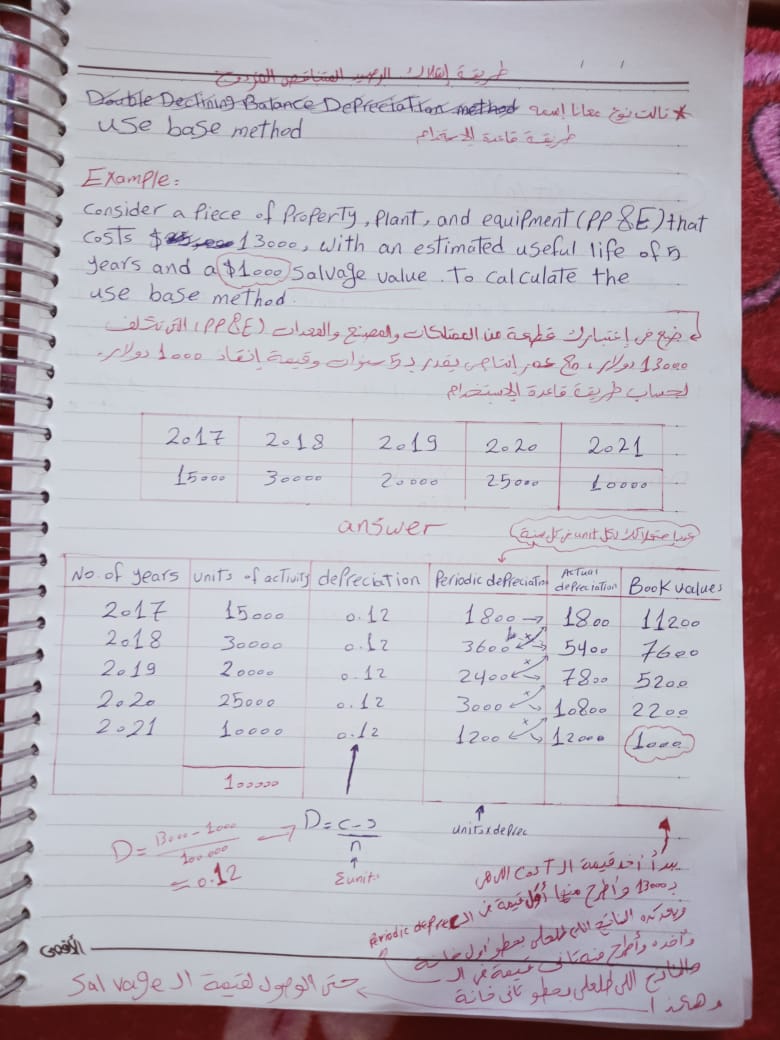 طريقة إهلاك الرصيد المتناقص المزدوج
Double Declining Balance Depreciation method * تالت نوع معانا اسمه
use base method طريقة قاعدة الإستخدام
Example:
Consider a piece of property, plant, and equipment (PP&E) that
costs $ 13000, with an estimated useful life of 5
years and a $1000 salvage value. To calculate the
use base method.
ضع في إعتبارك قطعة من الممتلكات والمصنع والمعدات (PP&E) التي تكلف
13000 دولار، مع عمر إنتاجي يقدر بـ 5 سنوات وقيمة إنقاذ 1000 دولار.
لحساب طريقة قاعدة الإستخدام
2017 2018 2019 2020 2021
15000 30000 20000 25000 10000
answer
لكل unit في كل سنة
No. of years units of activity depreciation Periodic depreciation Actual depreciation Book values
2017 15000 0.12 1800 → 1800 11200
2018 30000 0.12 3600 5400 7600
2019 20000 0.12 2400 7800 5200
2020 25000 0.12 3000 10800 2200
2021 10000 0.12 1200 12000 1000
100000
units x deprec
D = 13000 - 1000 / 100.000 → D = c - s / n
= 0.12 Σ units
يبدأ أخد قيمة الـ cost اللي هي
بـ 13000 وأطرح منها أول قيمة في الـ Periodic deprec
وبعد كده الناتج اللي طلعلي بحطو أول خانة
وأخده وأطرح منه تاني قيمة في الـ
والناتج اللي طلعلي بحطو تاني خانة
وهكذا حتى الوصول لقيمة الـ Salvage
الأقصى